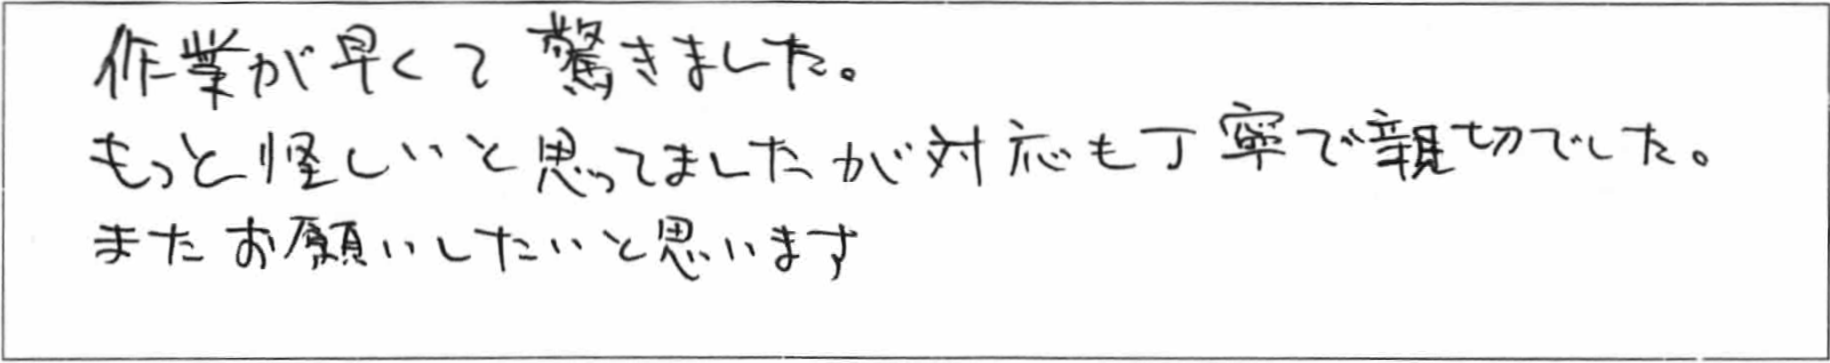 作業が早くて驚きました。
もっと怪しいと思ってましたが対応も丁寧で親切でした。
またお願いしたいと思います